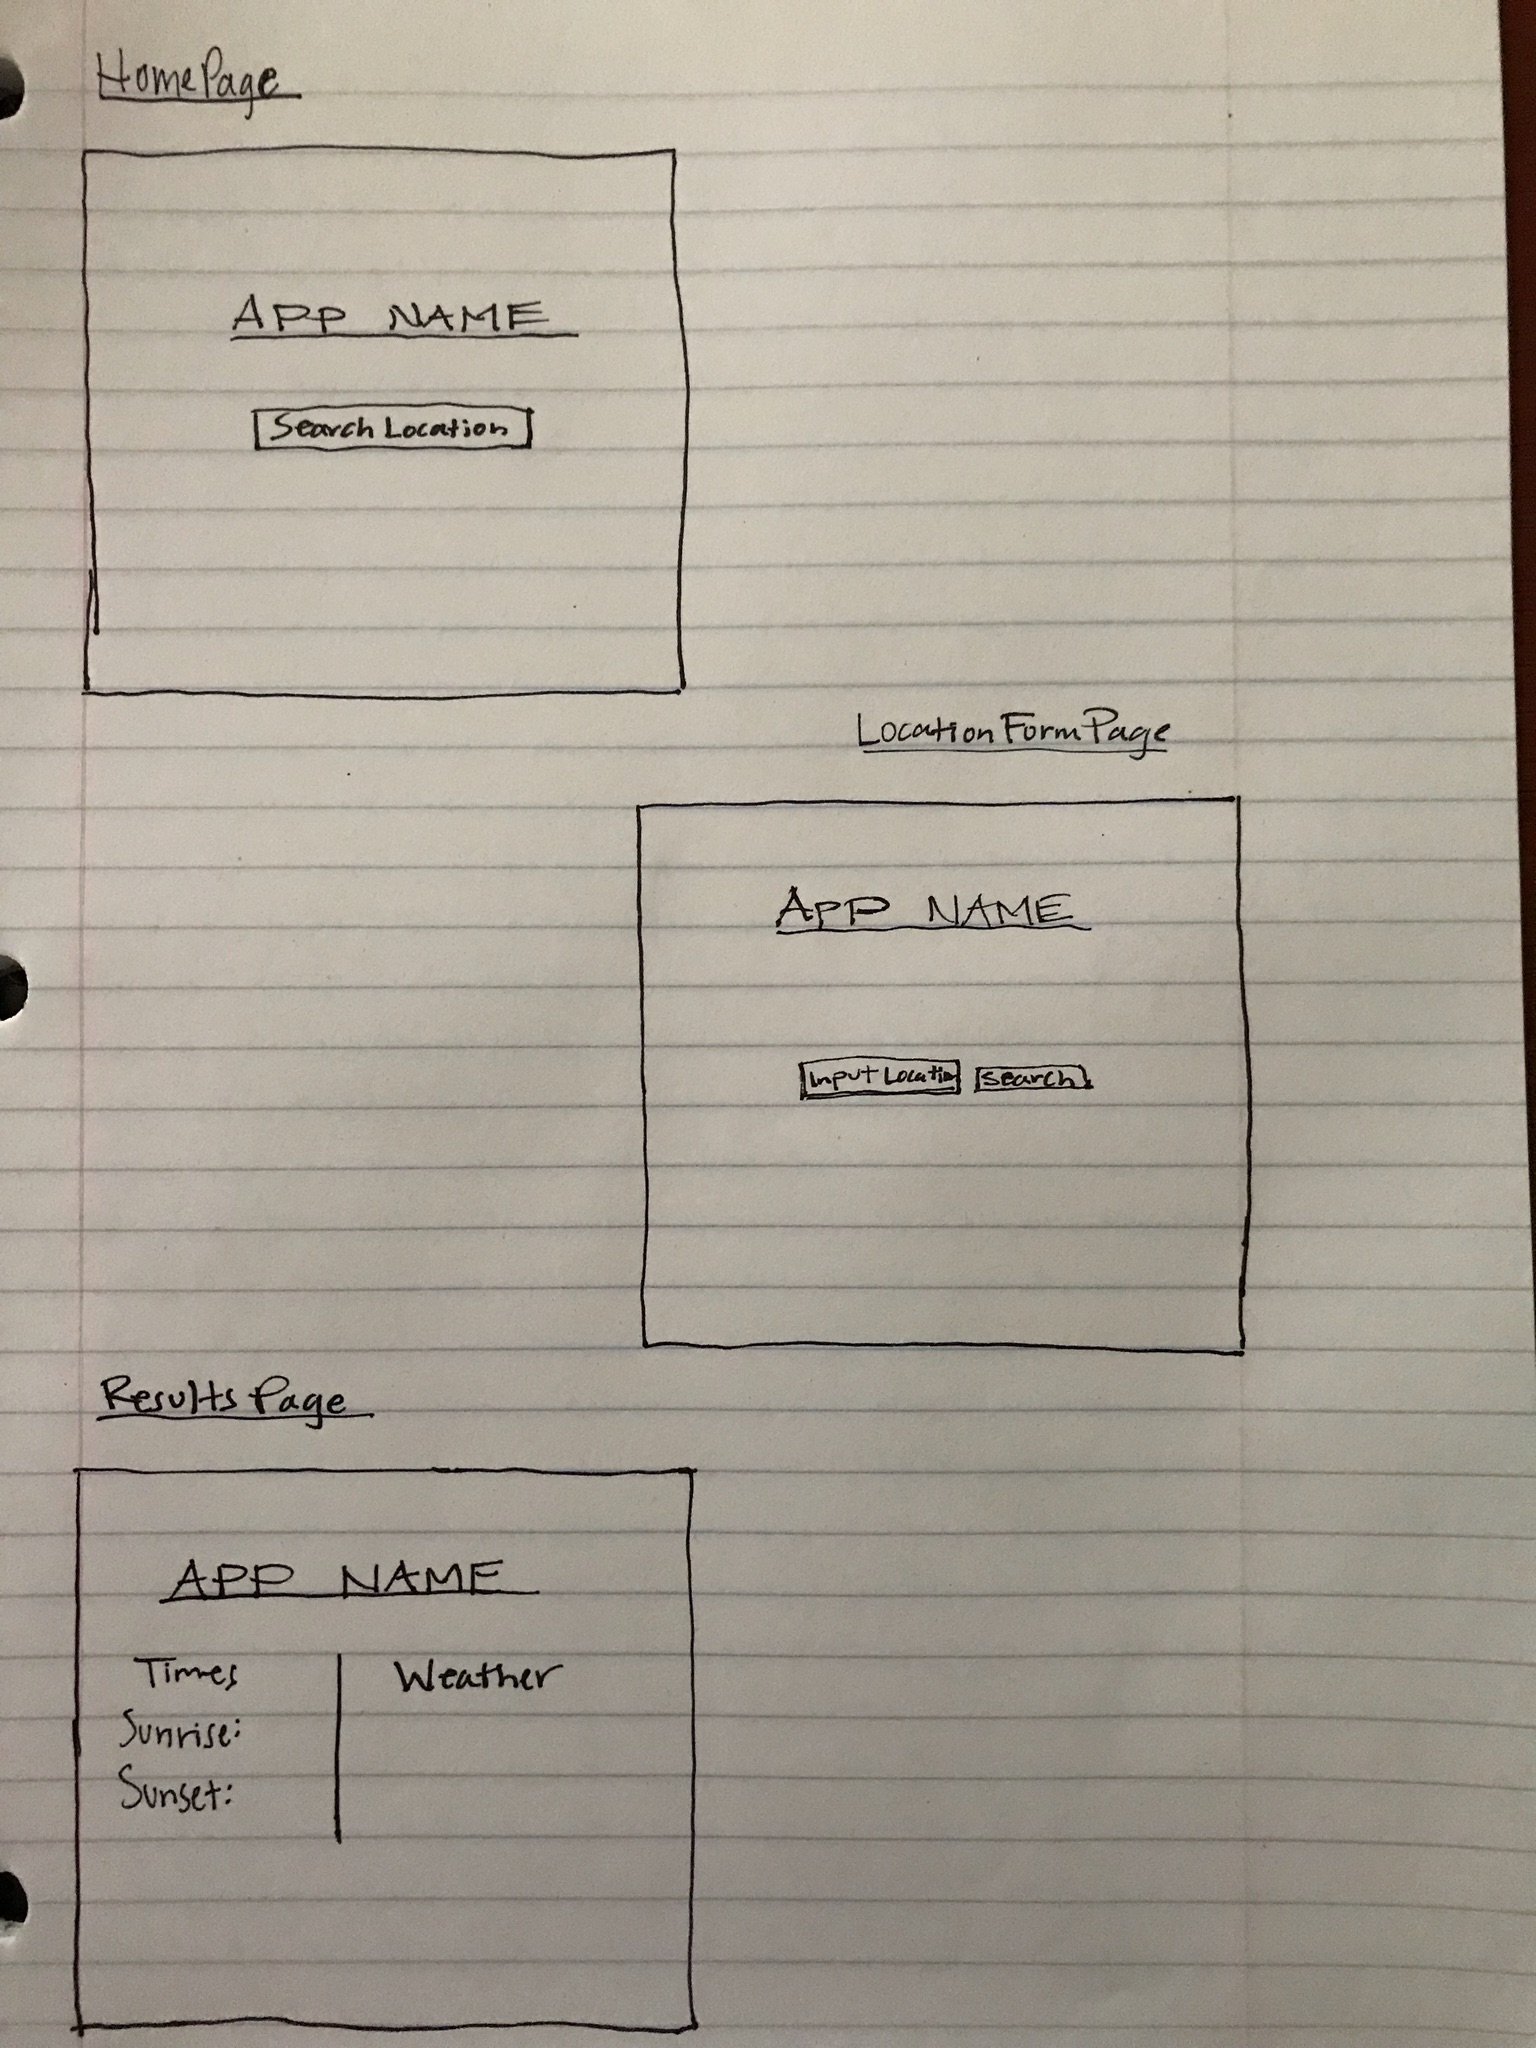 HomePage
APP NAME
Search Location
LocationFormPage
APP NAME
Input Location Search
Results Page
APP NAME
Times Weather
Sunrise:
Sunset: